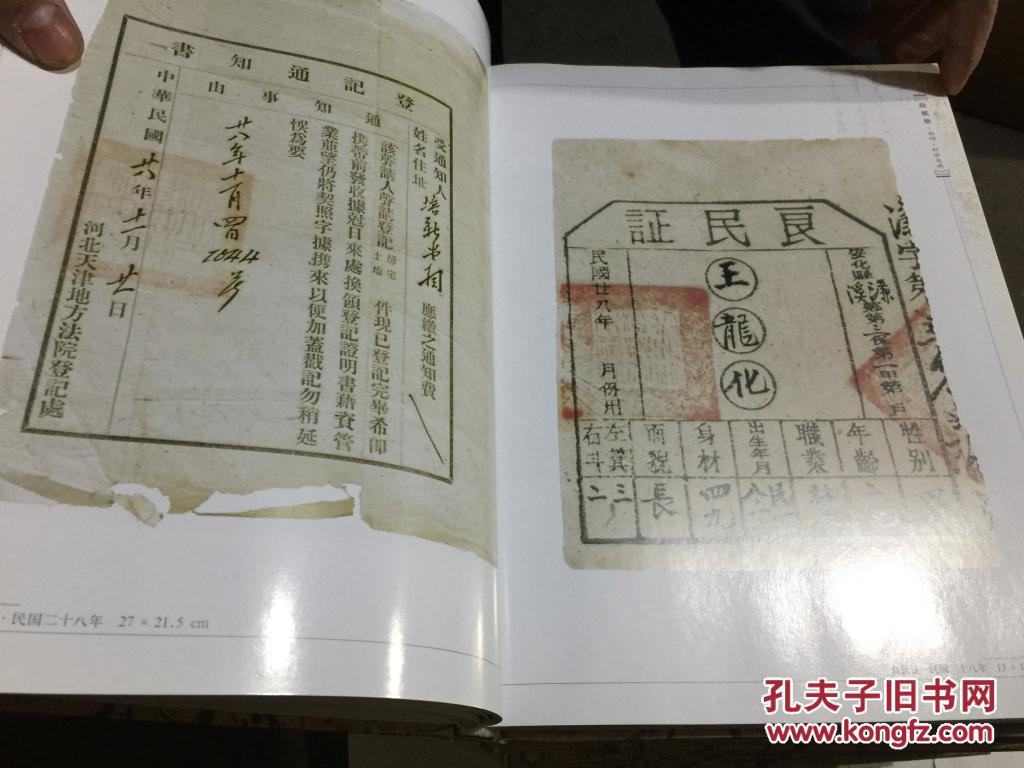 登記通知書
受通知人
姓名住址
應繳之通知費
通知事由
該聲請人聲請登記房宅土地
件現已登記完畢希即
携舊前發收據尅日來處換領登記證明書藉資管
業並望仍將契照字據携來以便加蓋戳記勿稍延
悞爲要
廿六年十一月四日
7044号
中華民國廿六年十一月廿一日
河北天津地方法院登記處
·民国二十八年 27 × 21.5 cm
良民証
安化縣
王龍化
民國廿八年 月份用
性別
年齡
職業
出生年月
身材
四九
面貌
長
左箕
右斗
三
二
孔夫子旧书网
www.kongfz.com